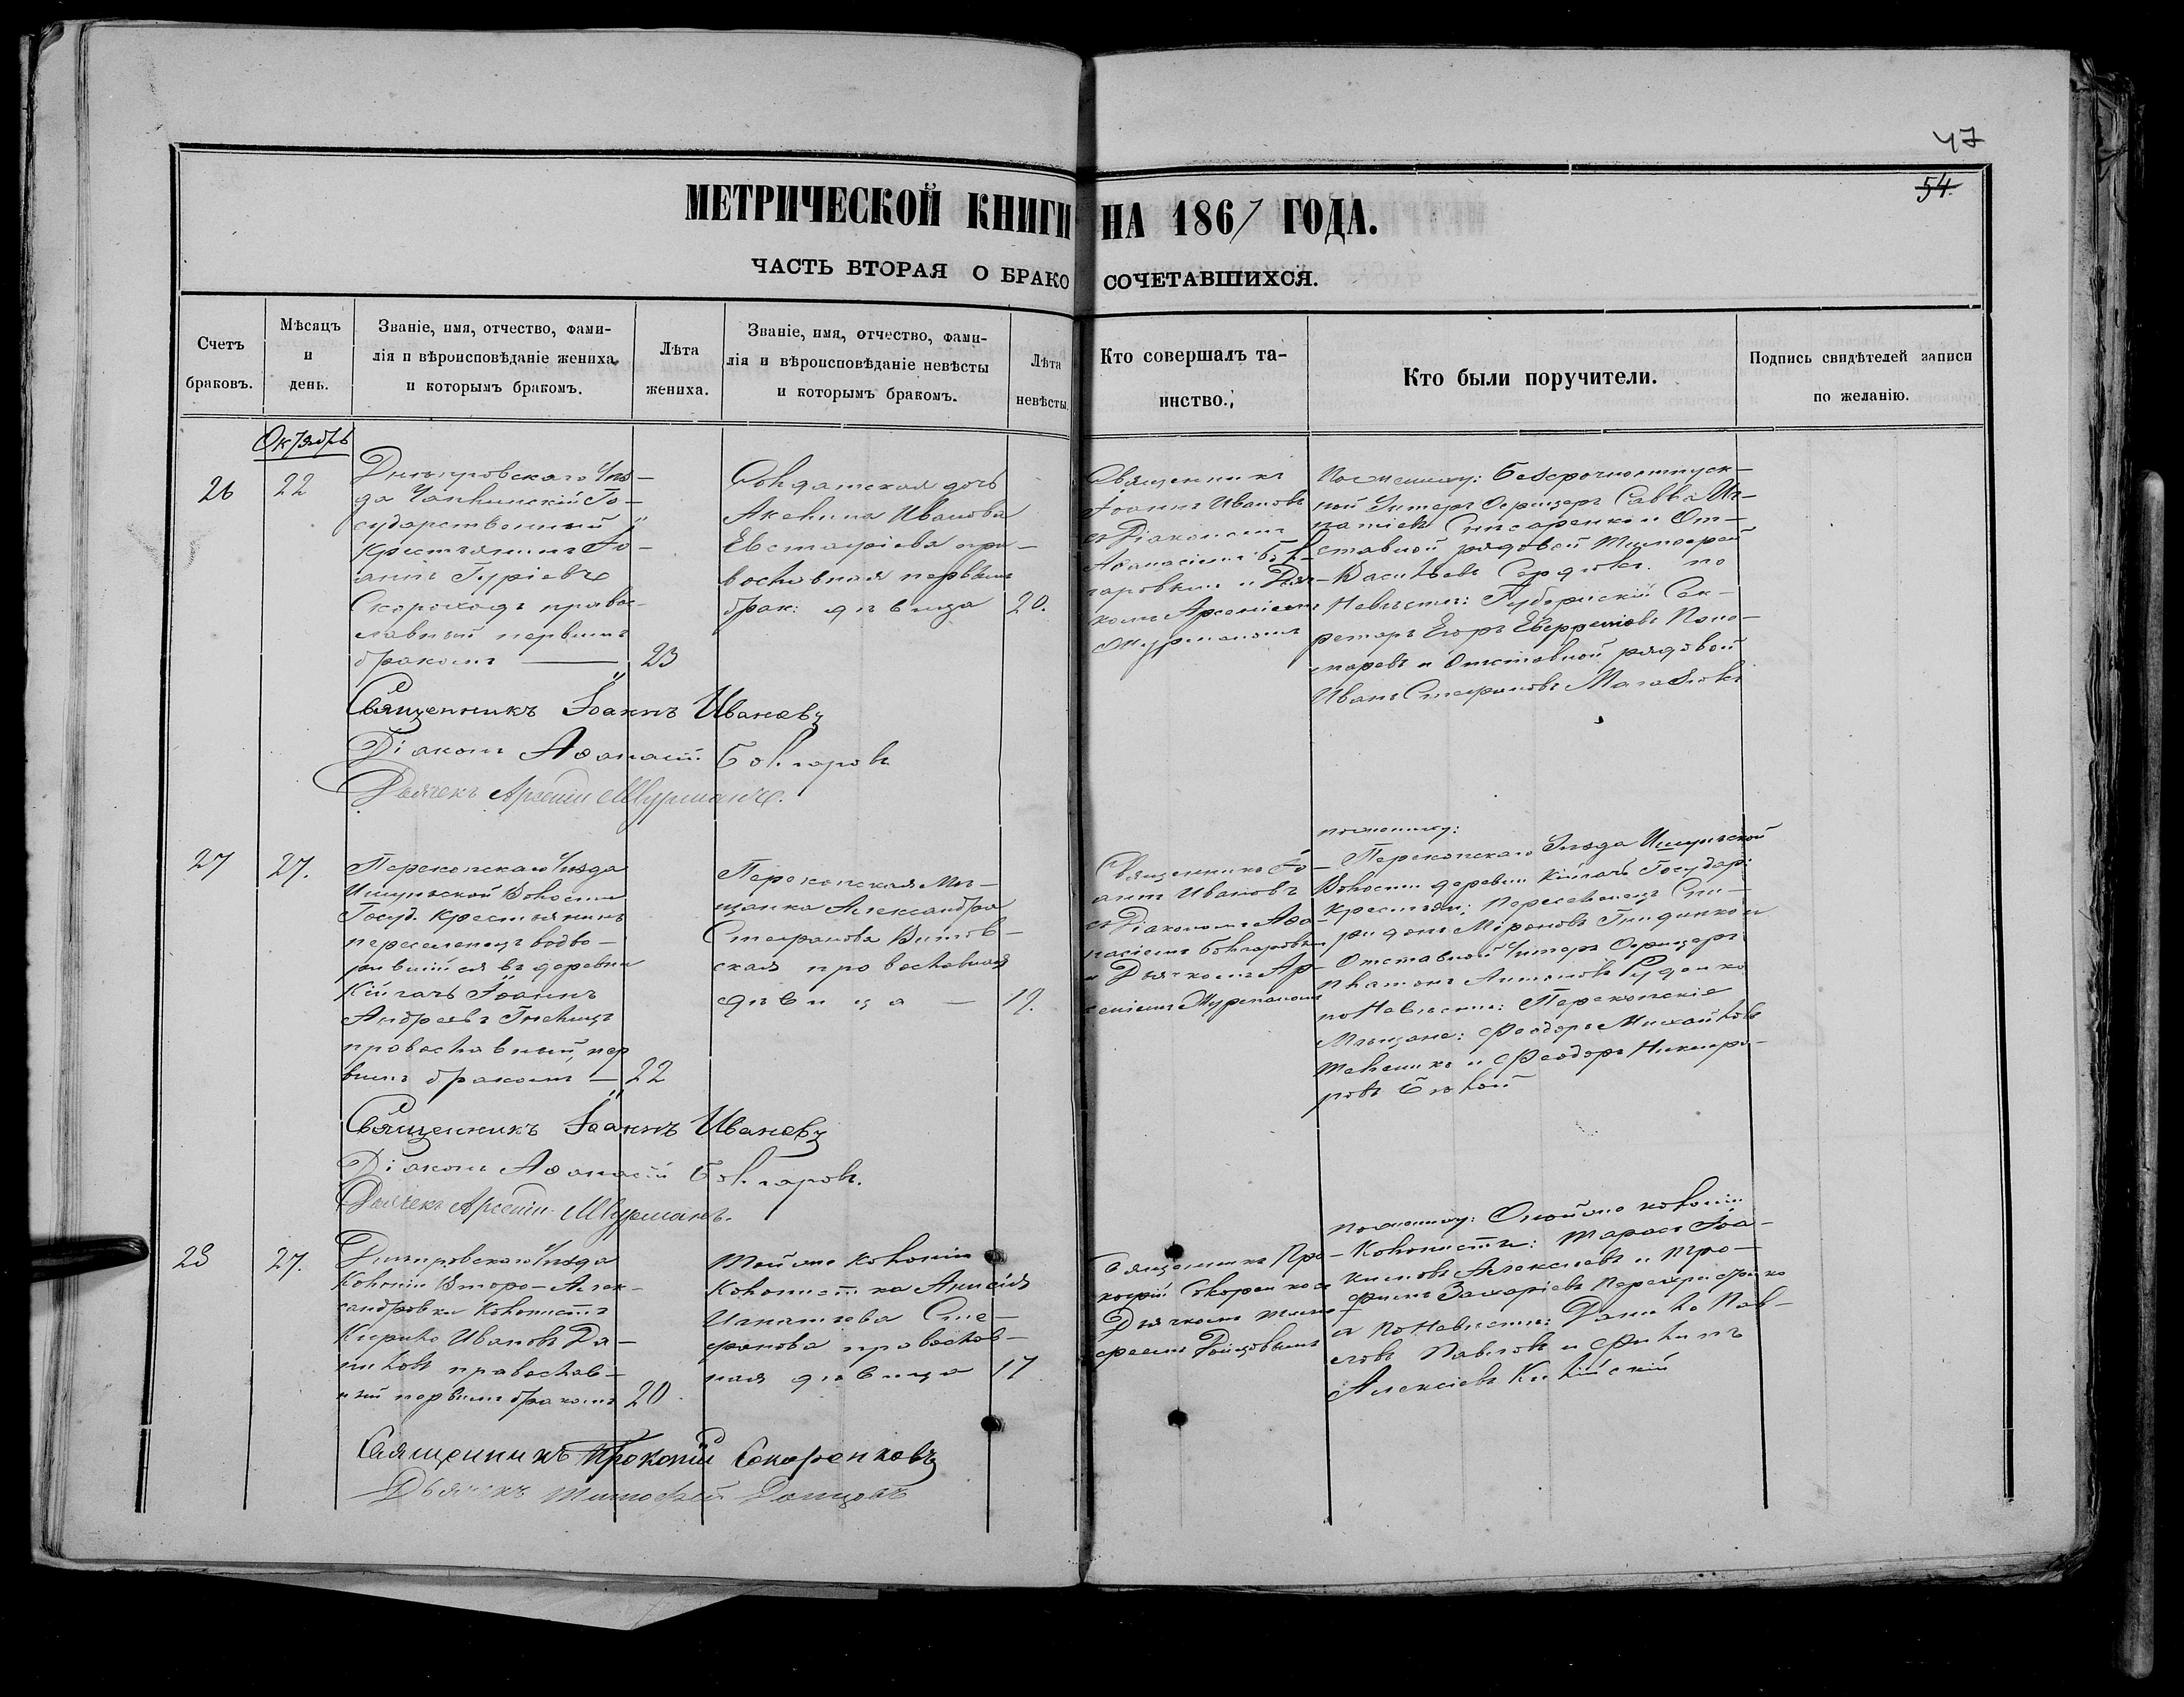 47
54.
МЕТРИЧЕСКОЙ КНИГИ НА 1867 ГОДА.
ЧАСТЬ ВТОРАЯ О БРАКОСОЧЕТАВШИХСЯ.
Счетъ браковъ.
Мѣсяцъ и день.
Званіе, имя, отчество, фами-
лія и вѣроисповѣданіе жениха,
и которымъ бракомъ.
Лѣта жениха.
Званіе, имя, отчество, фами-
лія и вѣроисповѣданіе невѣсты
и которымъ бракомъ.
Лѣта невѣсты.
Кто совершалъ та-
инство.
Кто были поручители.
Подпись свидѣтелей записи
по желанію.
Октябрь
26
22
Днѣпровскаго Уѣз-
да Чаплинскій Го-
сударственный
Крестьянинъ Іо-
аннъ Гуріевъ
Скороходъ право-
славный первымъ
бракомъ — 23
Солдатская дочь
Акилина Иванова
Евстафіева пра-
вославная первымъ
брак: дѣвица
20.
Священникъ
Іоаннъ Ивановъ
съ Діакономъ
Афанасіемъ Бол-
гаровымъ и Дья-
комъ Арсеніемъ
Шурманомъ
По жениху: Безсрочноотпуск-
ной Унтеръ Офицеръ Савва Иг-
натіевъ Слюсаренко и От-
ставной рядовой Тимофей
Васильевъ Сердюкъ. по
Невѣстѣ: Губернскій Сек-
ретарь Егоръ Евфреміевъ Поно-
маревъ и Отставной рядовой
Иванъ Стефановъ Магазюкъ
Священникъ Іоаннъ Ивановъ
Діаконъ Афанасій Болгаровъ
Дьячекъ Арсеній Шурманъ.
27
27.
Перекопскаго Уѣзда
Ишунской Волости
Госуд. Крестьянинъ
переселенецъ водво-
рившійся въ деревни
Кіягачъ Іоаннъ
Андреевъ Гнелицъ
православный, пер
вымъ бракомъ — 22
Перекопская Мѣ-
щанка Александра
Стефанова Витов-
ская православная
дѣвица —
19.
Священникъ Іо-
аннъ Ивановъ
съ Діакономъ Афа-
насіемъ Болгаровымъ
и Дьячкомъ Ар-
сеніемъ Шурманомъ
по жениху:
Перекопскаго Уѣзда Ишунской
Волости деревни Кіягачъ Государ:
крестьян: Переселенецъ Спи-
ридонъ Мироновъ Гнидинко и
Отставной Унтеръ Офицеръ
Платонъ Антоновъ Руденко
по Невѣстѣ: Перекопскіе
Мѣщане: Феодоръ Михайловъ
и Феодоръ Никифо-
ровъ Бѣлой
Священникъ Іоаннъ Ивановъ
Діаконъ Афанасій Болгаровъ.
Дьячекъ Арсеній Шурманъ.
28
27.
Днѣпровскаго Уѣзда
Колоніи Второ-Алек-
сандровки Колонистъ
Кирило Ивановъ Да-
ниловъ православ-
ный первымъ бракомъ 20
Той же Колоніи
Колонистка Анисія
Игнатіева Сте-
фанова православ-
ная дѣвица 17
Священникъ Про-
копій Сокоренковъ
Дьячкомъ Тимо-
феемъ Донцовымъ
по жениху: Оной же колоніи
Колонисты: Тарасъ Іоа-
кимовъ Алексеевъ и Тро-
фимъ Захаріевъ
а по Невѣстѣ: Данило Пав-
ловъ Павловъ и Филипъ
Алексіевъ
Священникъ Прокопій Сокоренковъ
Дьячекъ Тимофей Донцовъ